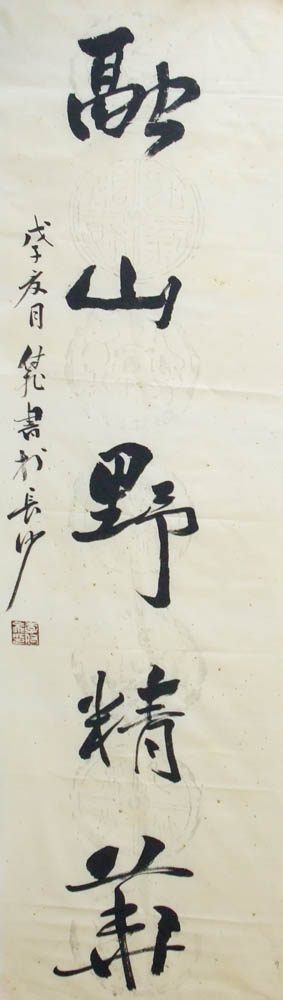 融山野精華
戊子夏月 書於長沙